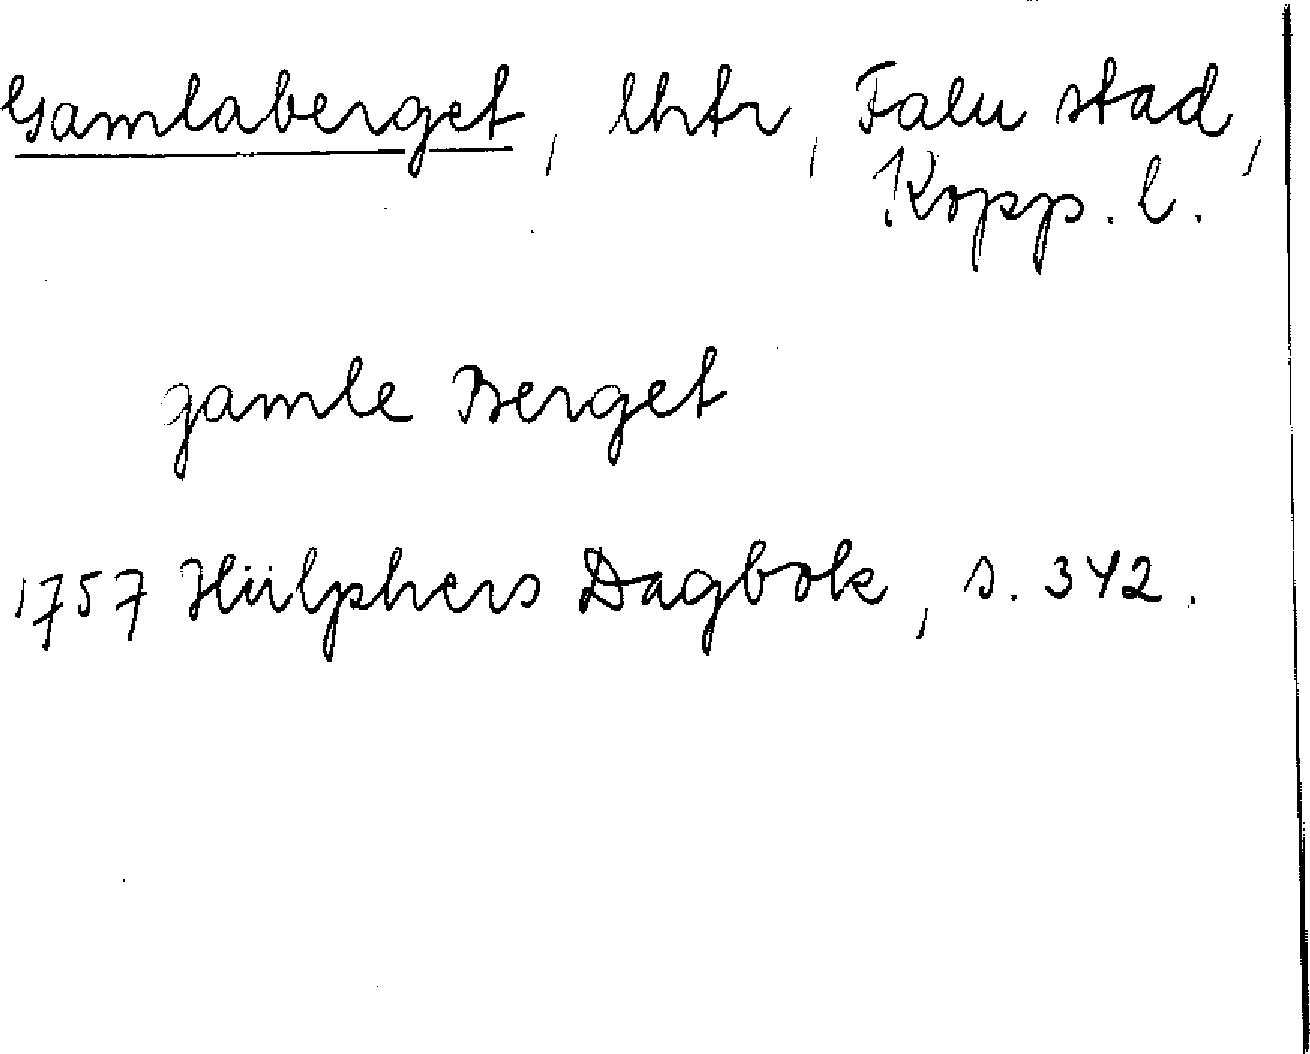 Gamlaberget, lhtr, Falu stad,
Kopp. l.
gamle Berget
1757 Hülphers Dagbok, s. 342.